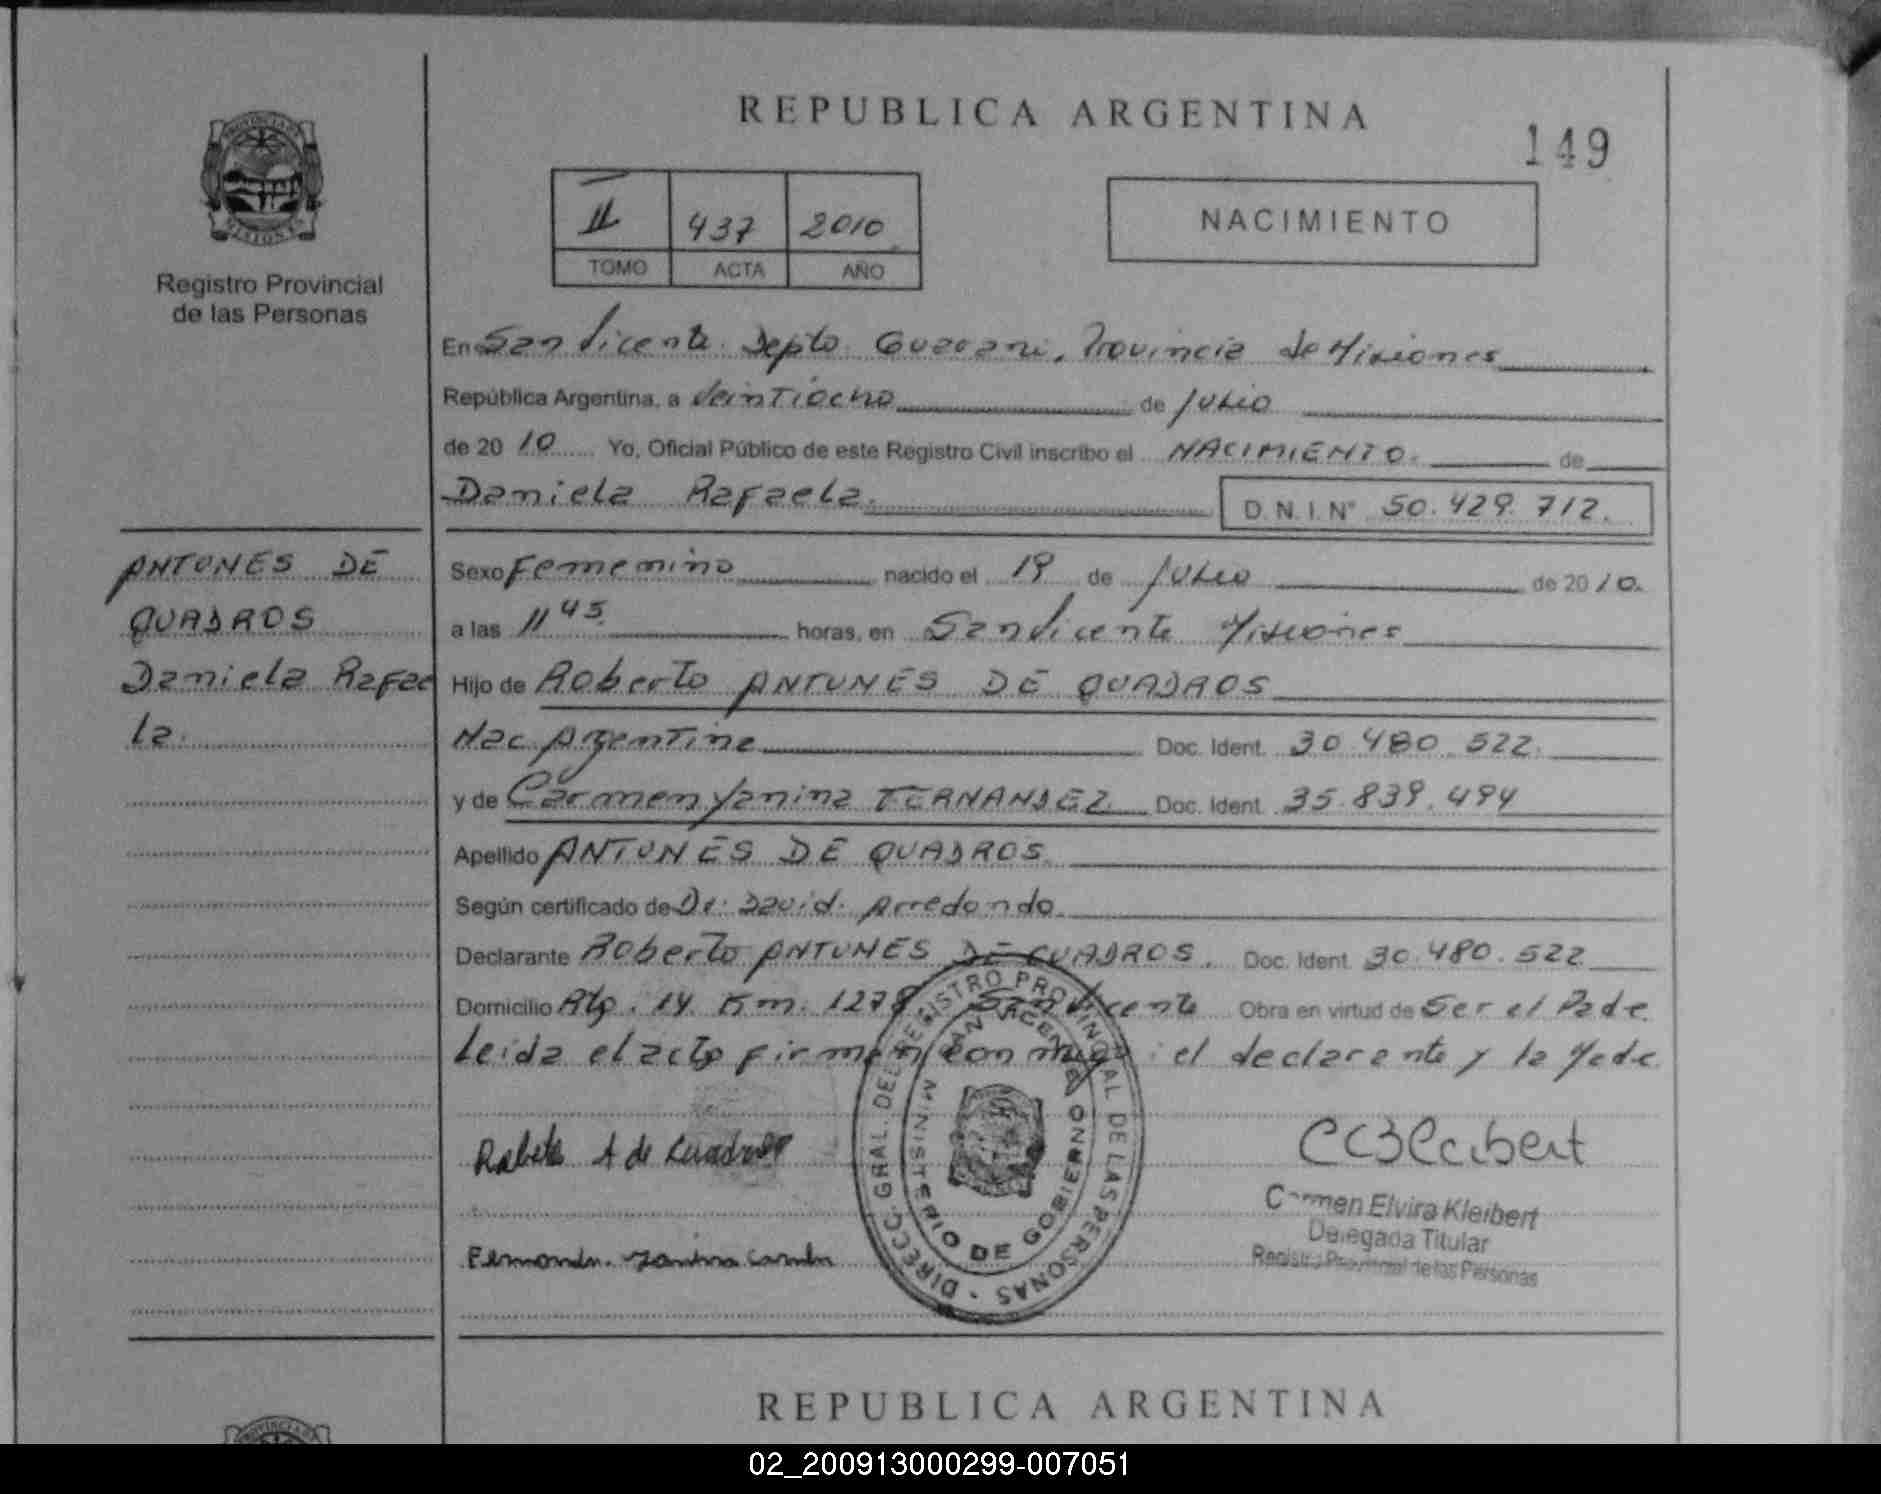 REPUBLICA ARGENTINA
149
PROVINCIA DE
MISIONES
Registro Provincial
de las Personas
II 437 2010
TOMO ACTA AÑO
NACIMIENTO
En San Vicente Depto Guarani, Provincia de Misiones
República Argentina, a Veintiocho de Julio
de 20 10 Yo, Oficial Público de este Registro Civil inscribo el NACIMIENTO. de
Daniela Rafaela. D.N.I.Nº 50.429.712.
ANTUNES DE
QUADROS
Daniela Rafae
la.
Sexo Femenino nacido el 19 de Julio de 20 10.
a las 11 45 horas, en San Vicente Misiones
Hijo de Roberto ANTUNES DE QUADROS
Nac. Argentina Doc. Ident. 30.480.522.
y de Carmen Yanina FERNANDEZ Doc. Ident. 35.839.494
Apellido ANTUNES DE QUADROS.
Según certificado de Dr. David. Arredondo.
Declarante Roberto ANTUNES DE CUADROS. Doc. Ident. 30.480.522
Domicilio Rta. 14. Km. 1278 San Vicente Obra en virtud de Ser el Padre
Leida el acta firman con migo: el declarante y la Madre
DIRECC. GRAL. DEL REGISTRO PROVINCIAL DE LAS PERSONAS
SAN VICENTE
MINISTERIO DE GOBIERNO
A de Cuadros
Carmen Elvira Kleibert
Delegada Titular
Registro Provincial de las Personas
REPUBLICA ARGENTINA
02_200913000299-007051